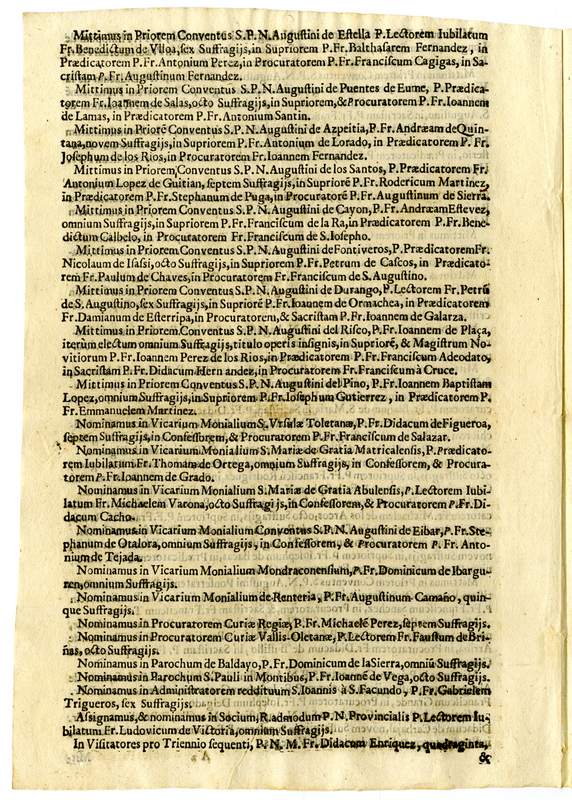 Mittimus in Priorem Conventus S.P.N. Augustini de Estella P. Lectorem Iubilatum
Fr. Benedictum de Vlloa, sex Suffragijs, in Supriorem P. Fr. Balthasarem Fernandez, in
Prædicatorem P. Fr. Antonium Perez, in Procuratorem P. Fr. Franciscum Cagigas, in Sa-
cristam P. Fr. Augustinum Fernandez.
Mittimus in Priorem Conventus S.P.N. Augustini de Puentes de Eume, P. Prædica-
torem Fr. Ioannem de Salas, octo Suffragijs, in Supriorem, & Procuratorem P. Fr. Ioannem
de Lamas, in Prædicatorem P. Fr. Antonium Santin.
Mittimus in Priorē Conventus S.P.N. Augustini de Azpeitia, P. Fr. Andræam de Quin-
tana, novem Suffragijs, in Supriorem P. Fr. Antonium de Lorado, in Prædicatorem P. Fr.
Iosephum de los Rios, in Procuratorem Fr. Ioannem Fernandez.
Mittimus in Priorem, Conventus S.P.N. Augustini de los Santos, P. Prædicatorem Fr.
Antonium Lopez de Guitian, septem Suffragijs, in Supriorē P. Fr. Rodericum Martinez,
in Prædicatorem P. Fr. Stephanum de Puga, in Procuratorē P. Fr. Augustinum de Sierra.
Mittimus in Priorem Conventus S.P.N. Augustini de Cayon, P. Fr. Andræam Estevez,
omnium Suffragijs, in Supriorem P. Fr. Franciscum de la Ra, in Prædicatorem P. Fr. Bene-
dictum Calbelo, in Procuratorem Fr. Franciscum de S. Iosepho.
Mittimus in Priorem Conventus S.P.N. Augustini de Fontiveros, P. Prædicatorem Fr.
Nicolaum de Isasi, octo Suffragijs, in Supriorem P. Fr. Petrum de Cascos, in Prædicato-
rem Fr. Paulum de Chaves, in Procuratorem Fr. Franciscum de S. Augustino.
Mittimus in Priorem Conventus S.P.N. Augustini de Durango, P. Lectorem Fr. Petrū
de S. Augustino, sex Suffragijs, in Supriorē P. Fr. Ioannem de Ormachea, in Prædicatorem
Fr. Damianum de Esterripa, in Procuratorem, & Sacristam P. Fr. Ioannem de Galarza.
Mittimus in Priorem Conventus S.P.N. Augustini del Risco, P. Fr. Ioannem de Plaça,
iterum electum omnium Suffragijs, titulo operis insignis, in Supriorē, & Magistrum No-
vitiorum P. Fr. Ioannem Perez de los Rios, in Prædicatorem P. Fr. Franciscum Adeodato,
in Sacristam P. Fr. Didacum Hernandez, in Procuratorem Fr. Franciscum à Cruce.
Mittimus in Priorem Conventus S.P.N. Augustini del Pino, P. Fr. Ioannem Baptistam
Lopez, omnium Suffragijs, in Supriorem P. Fr. Iosephum Gutierrez, in Prædicatorem P.
Fr. Emmanuelem Martinez.
Nominamus in Vicarium Monialium S. Vrsulæ Toletanæ, P. Fr. Didacum de Figueroa,
septem Suffragijs, in Confessorem, & Procuratorem P. Fr. Franciscum de Salazar.
Nominamus in Vicarium Monialium S. Mariæ de Gratia Matricalensis, P. Prædicato-
rem Iubilatum Fr. Thomam de Ortega, omnium Suffragijs, in Confessorem, & Procura-
torem P. Fr. Ioannem de Grado.
Nominamus in Vicarium Monialium S. Mariæ de Gratia Abulensis, P. Lectorem Iubi-
latum Fr. Michaelem Varona, octo Suffragijs, in Confessorem, & Procuratorem P. Fr. Di-
dacum Cacho.
Nominamus in Vicarium Monialium Conventus S.P.N. Augustini de Eibar, P. Fr. Ste-
phanum de Otalora, omnium Suffragijs, in Confessorem, & Procuratorem P. Fr. Anto-
nium de Tejada.
Nominamus in Vicarium Monialium Mondraconensium, P. Fr. Dominicum de Ibargu-
ren, omnium Suffragijs.
Nominamus in Vicarium Monialium de Renteria, P. Fr. Augustinum Camaño, quin-
que Suffragijs.
Nominamus in Procuratorem Curiæ Regiæ, P. Fr. Michaelē Perez, septem Suffragijs.
Nominamus in Procuratorem Curiæ Vallis-Oletanæ, P. Lectorem Fr. Faustum de Bri-
ñas, octo Suffragijs.
Nominamus in Parochum de Baldayo, P. Fr. Dominicum de la Sierra, omniū Suffragijs.
Nominamus in Parochum S. Pauli in Montibus, P. Fr. Ioannē de Vega, octo Suffragijs.
Nominamus in Administratorem reddituum S. Ioannis à S. Facundo, P. Fr. Gabrielem
Trigueros, sex Suffragijs.
Assignamus, & nominamus in Socium, R. admodum P. N. Provincialis P. Lectorem Iu-
bilatum Fr. Ludovicum de Victoria, omnium Suffragijs.
In Visitatores pro Triennio sequenti, P. N. M. Fr. Didacum Enriquez, quadraginta,
&